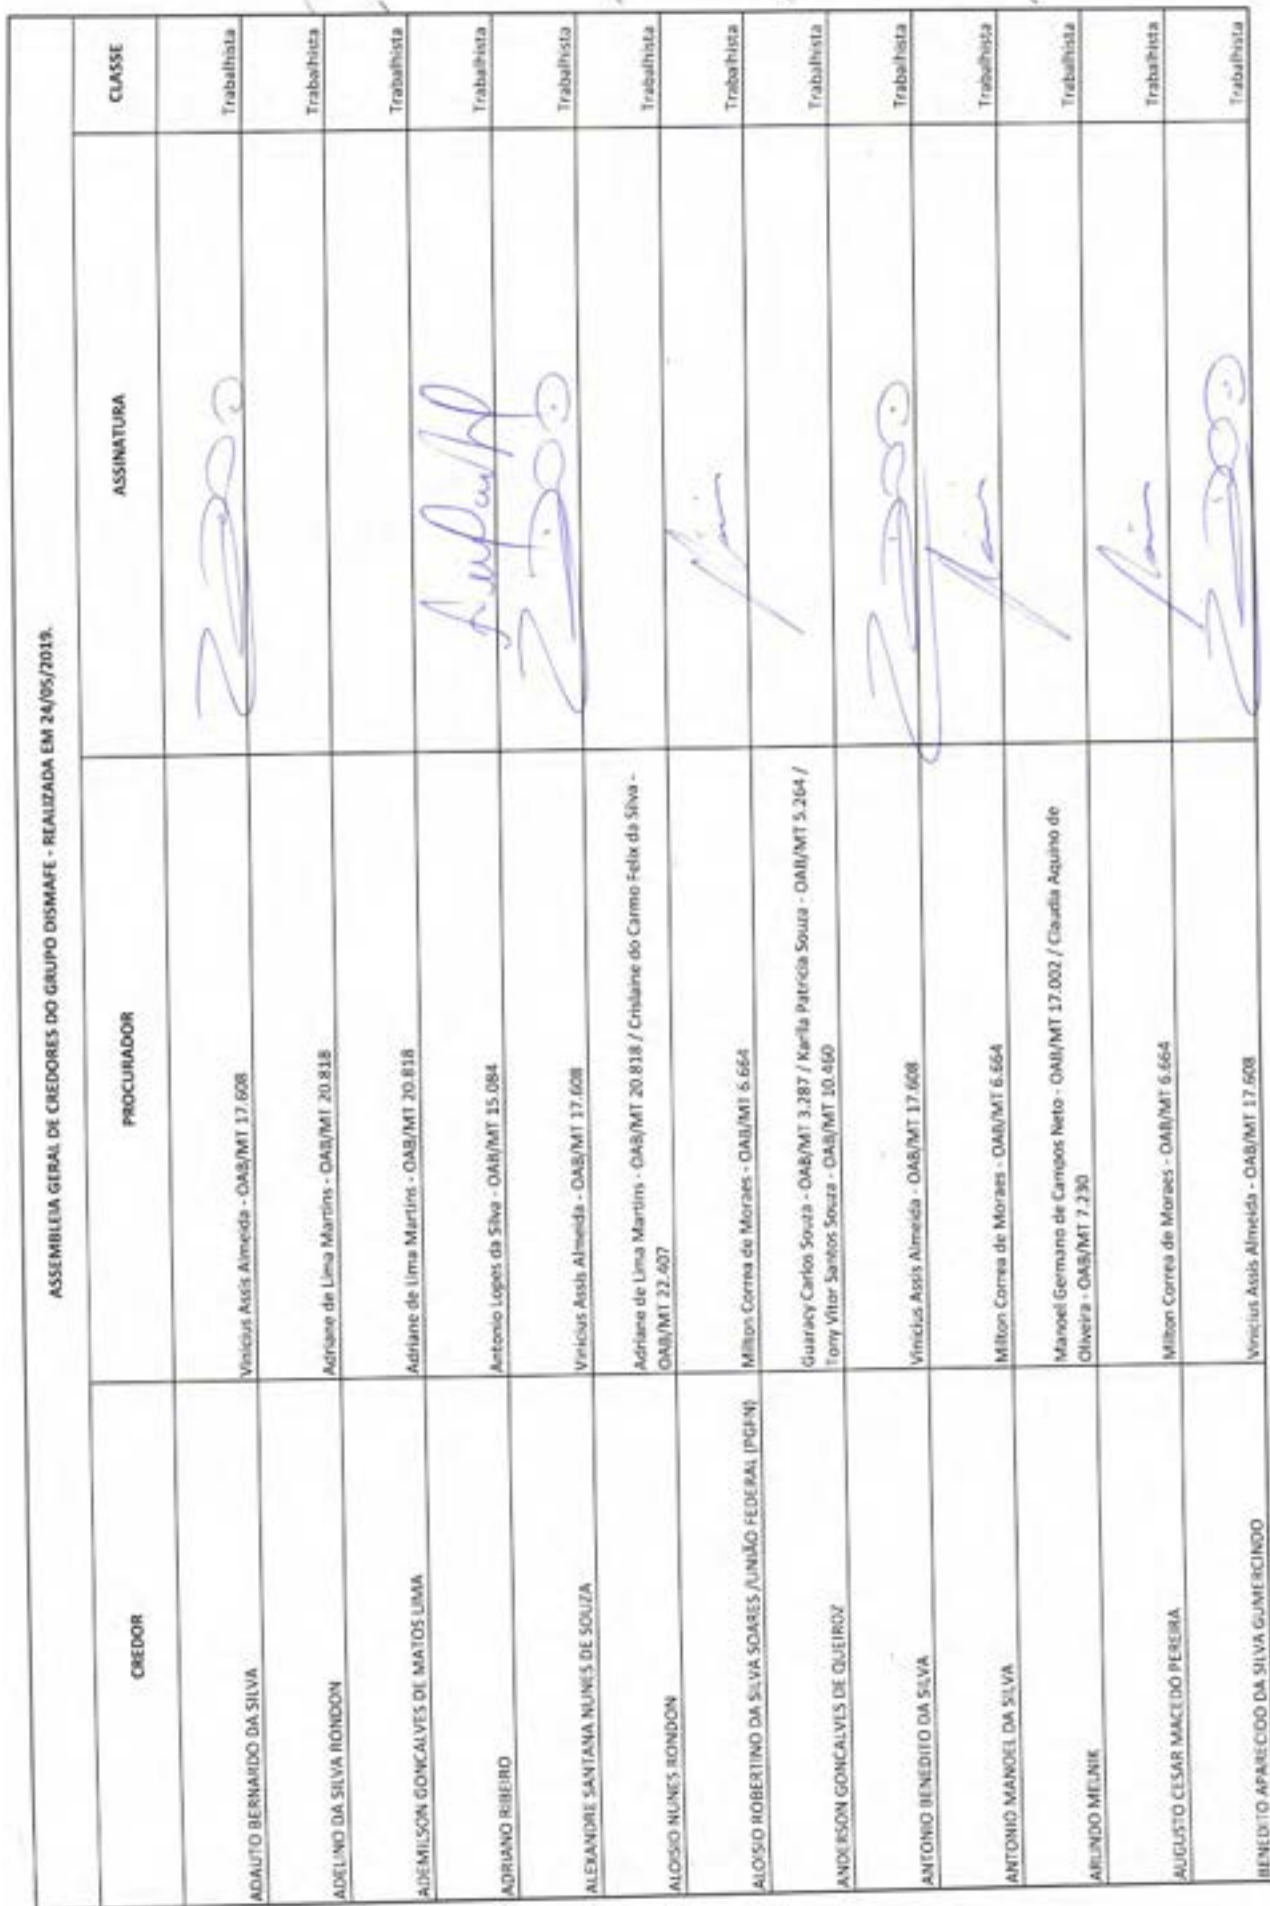 ASSEMBLEIA GERAL DE CREDORES DO GRUPO DISMAFE - REALIZADA EM 24/05/2019.
CREDOR PROCURADOR ASSINATURA CLASSE
ADAUTO BERNARDO DA SILVA Vinicius Assis Almeida - OAB/MT 17.608 Trabalhista
ADELINO DA SILVA RONDON Adriane de Lima Martins - OAB/MT 20.818 Trabalhista
ADEMILSON GONCALVES DE MATOS LIMA Adriane de Lima Martins - OAB/MT 20.818 Trabalhista
ADRIANO RIBEIRO Antonio Lopes da Silva - OAB/MT 15.084 Trabalhista
ALEXANDRE SANTANA NUNES DE SOUZA Vinicius Assis Almeida - OAB/MT 17.608 Trabalhista
Adriane de Lima Martins - OAB/MT 20.818 / Crislaine do Carmo Felix da Silva -
ALOISIO NUNES RONDON OAB/MT 22.407 Trabalhista
ALOISIO ROBERTINO DA SILVA SOARES /UNIÃO FEDERAL (PGFN) Milton Correa de Moraes - OAB/MT 6.664 Trabalhista
Guaracy Carlos Souza - OAB/MT 3.287 / Karlla Patricia Souza - OAB/MT 5.264 /
ANDERSON GONCALVES DE QUEIROZ Tony Vitor Santos Souza - OAB/MT 10.460 Trabalhista
ANTONIO BENEDITO DA SILVA Vinicius Assis Almeida - OAB/MT 17.608 Trabalhista
ANTONIO MANOEL DA SILVA Milton Correa de Moraes - OAB/MT 6.664 Trabalhista
Manoel Germano de Campos Neto - OAB/MT 17.002 / Claudia Aquino de
ARLINDO MELNIK Oliveira - OAB/MT 7.230 Trabalhista
AUGUSTO CESAR MACEDO PEREIRA Milton Correa de Moraes - OAB/MT 6.664 Trabalhista
BENEDITO APARECIDO DA SILVA GUMERCINDO Vinicius Assis Almeida - OAB/MT 17.608 Trabalhista